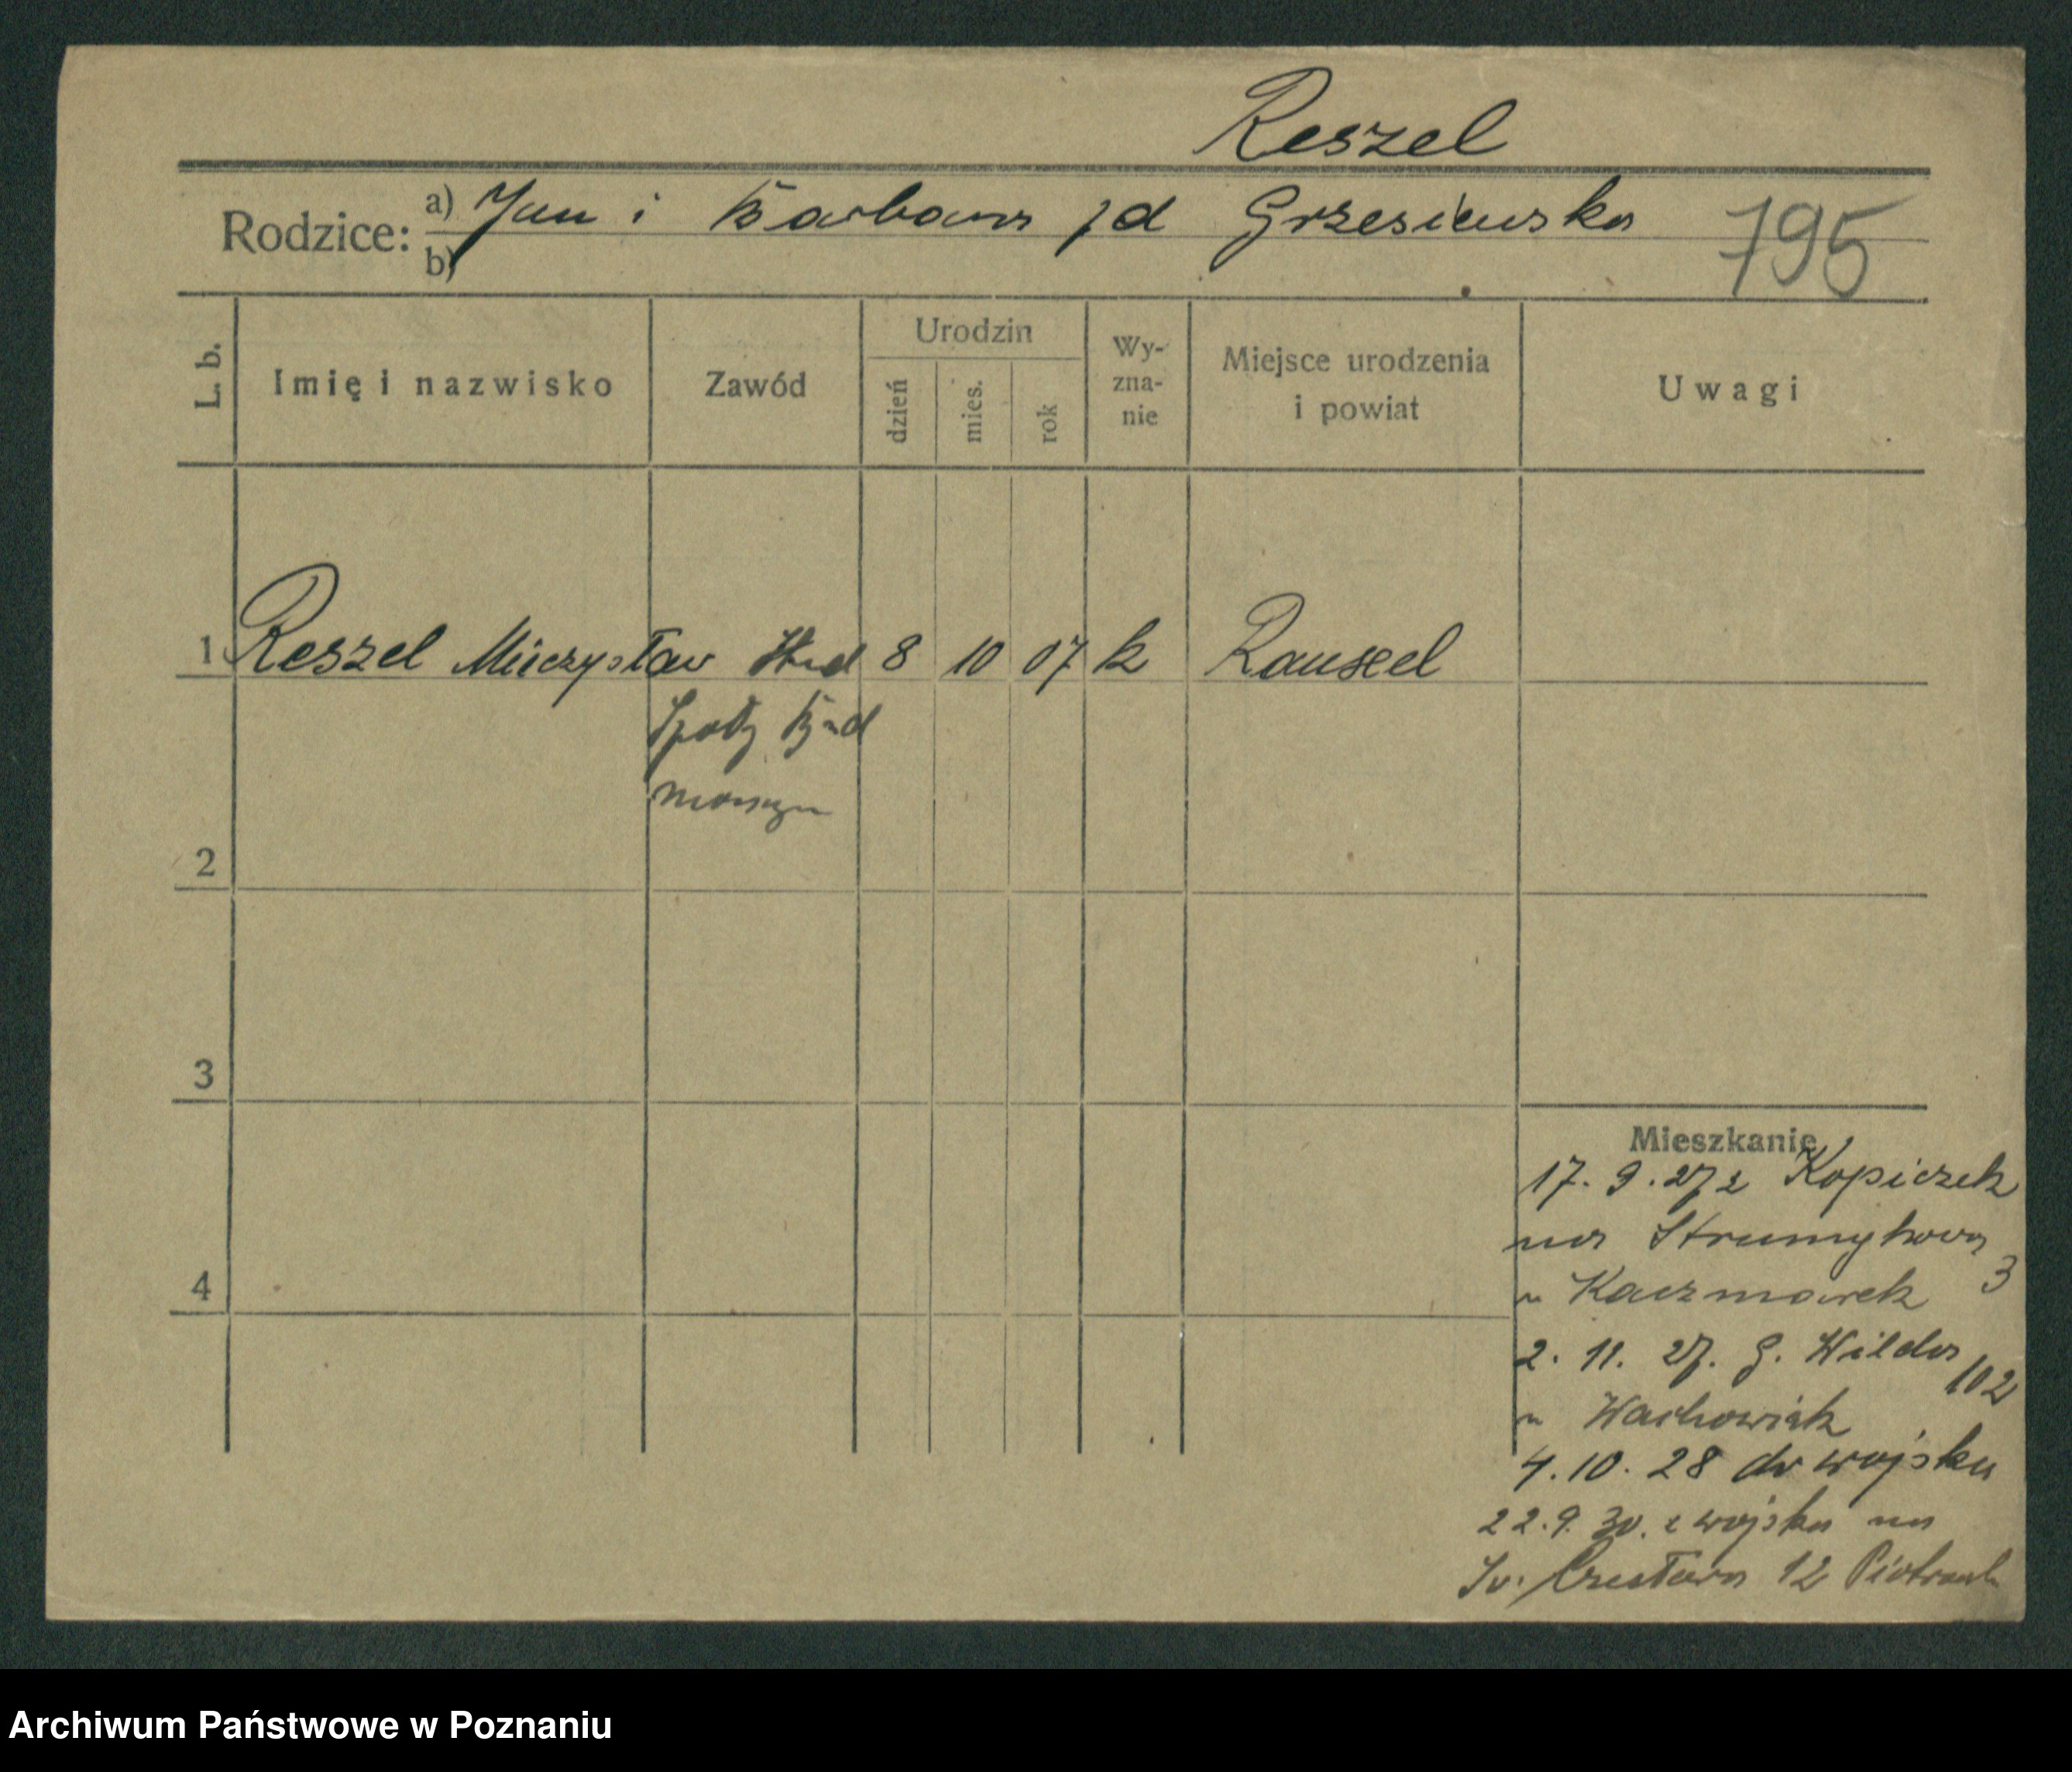 Reszel
Rodzice: a) Jan i Barbara zd Grzesiewska 795
b)
L. b. Imię i nazwisko Zawód Urodzin dzień mies. rok Wy- zna- nie Miejsce urodzenia i powiat Uwagi
1 Reszel Mieczysław 8 10 07 k Rauxel
2
3
4
Mieszkanie
17. 9. 27 z Kopiczek
na Strumykowa 3
u Kaczmarek
2. 11. 27. G. Wilda 102
u Wachowiak
4. 10. 28 do wojska
22. 9. 30. z wojska na
Św. Czesława 12
Archiwum Państwowe w Poznaniu